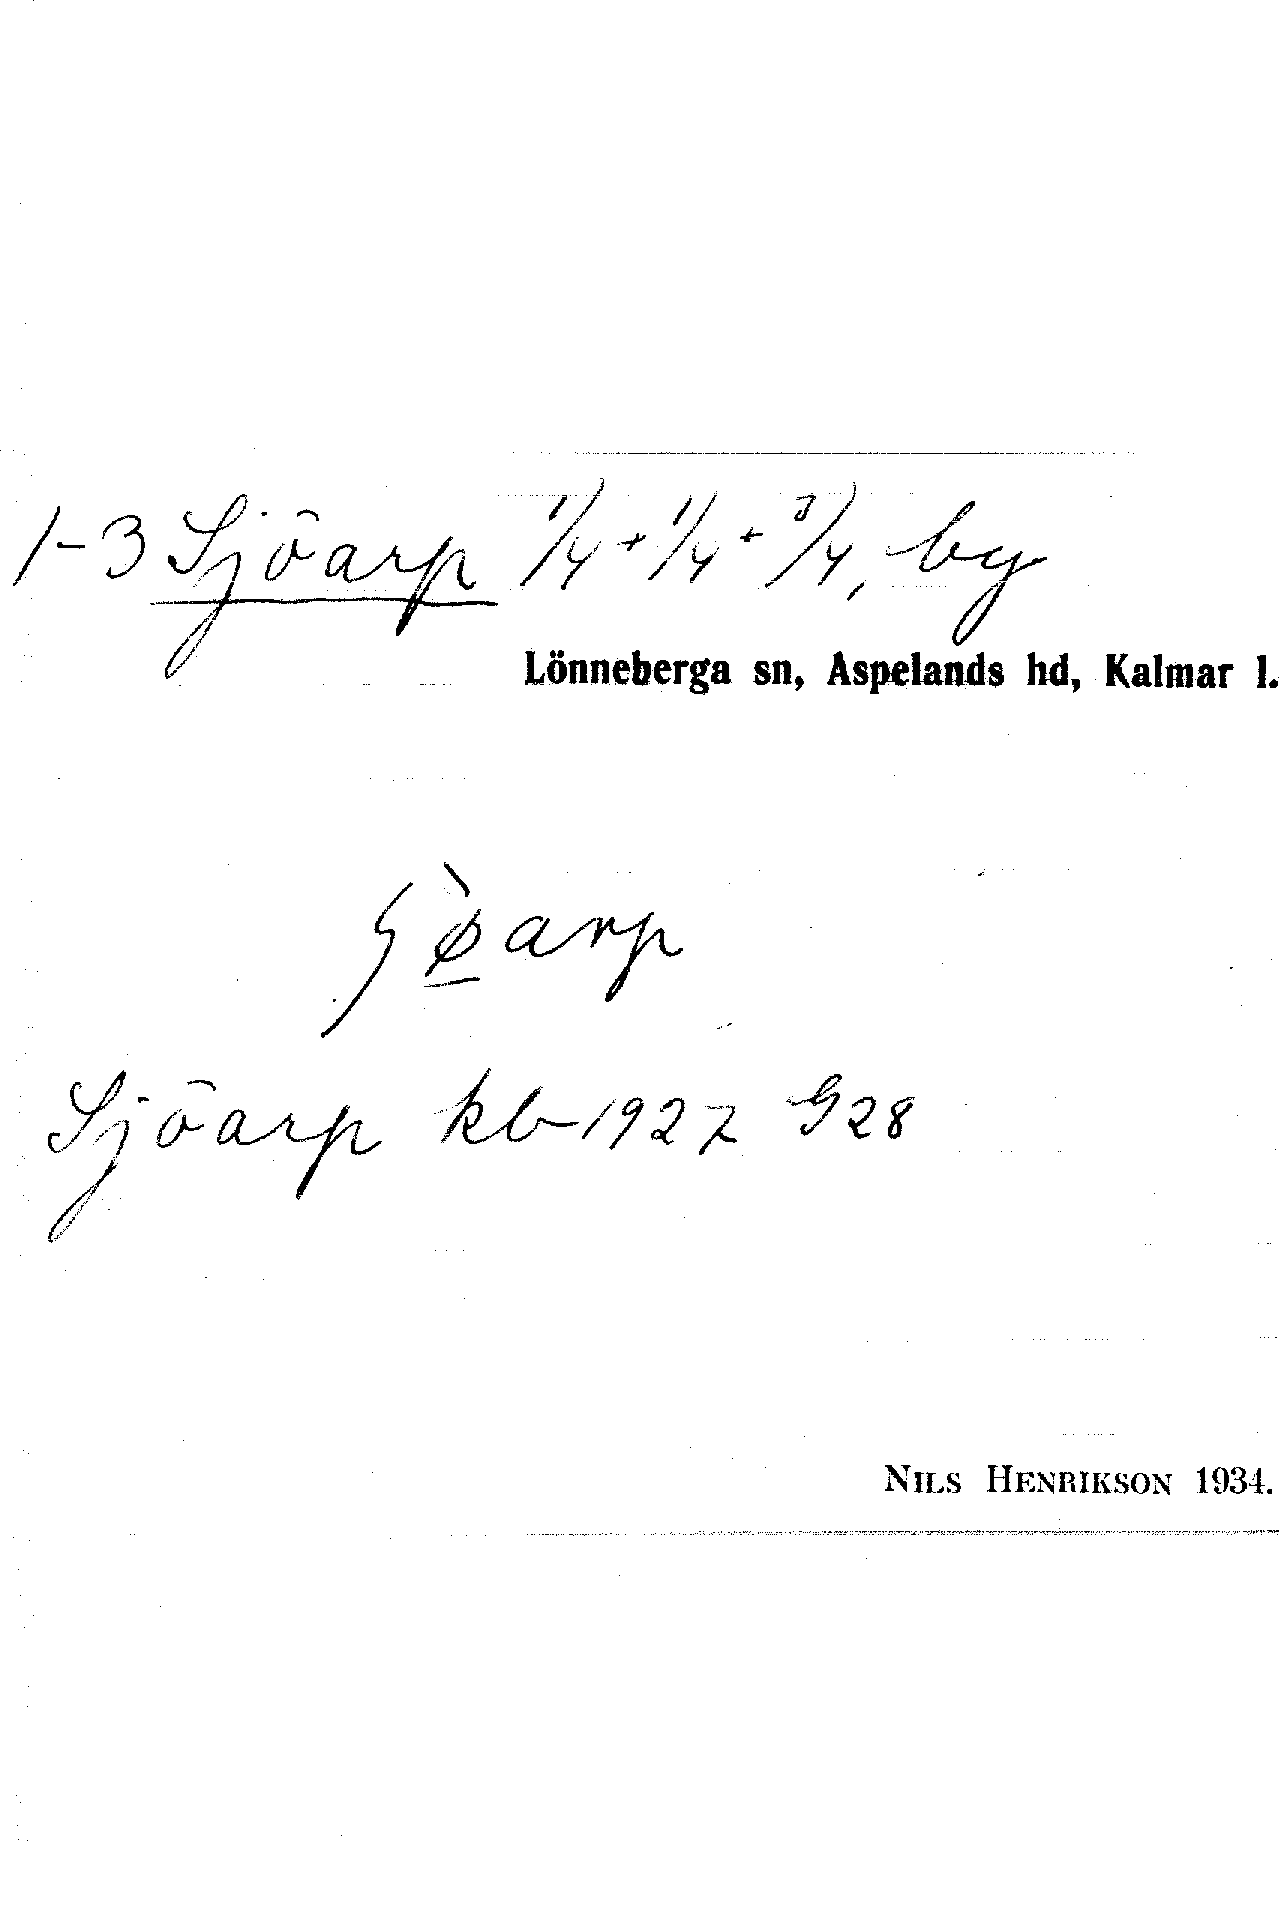 1-3 Sjöarp 1/4 + 1/4 + 3/4, by
Lönneberga sn, Aspelands hd, Kalmar l.
ʃø̀arp
Sjöarp kb 1927 G28
NILS HENRIKSON 1934.